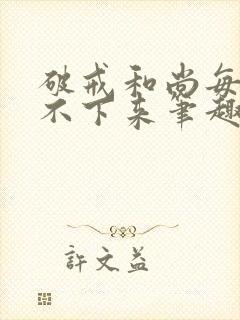 破戒和尚每
不下来笔趣
許文益